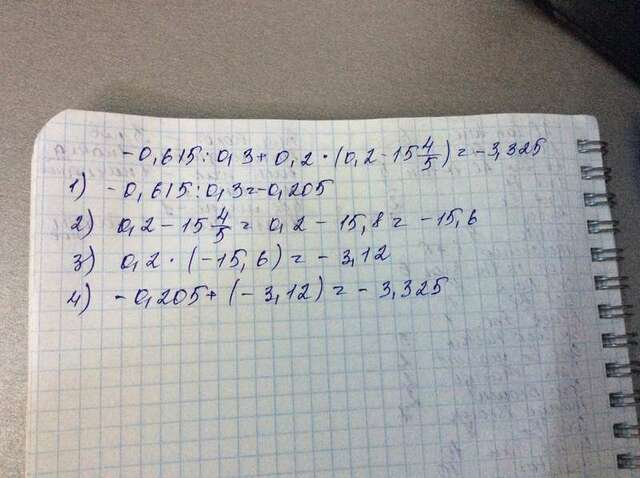 -0,615:0,3+0,2·(0,2-15 4/5)=-3,325
1) -0,615:0,3=-0,205
2) 0,2-15 4/5=0,2-15,8=-15,6
3) 0,2·(-15,6)=-3,12
4) -0,205+(-3,12)=-3,325